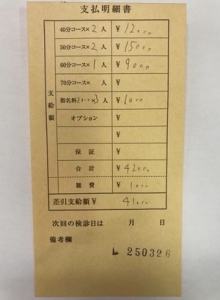 支払明細書
支給額
40分コース×2人 ¥12000
50分コース×2人 ¥15000
60分コース×1人 ¥9000
70分コース× 人 ¥
指名料 3人 ¥
オプション ¥
¥
保証 ¥
合計 ¥42000
雑費 ¥1000
差引支給額¥ 41000
次回の検診日は 月 日
備考欄
250326